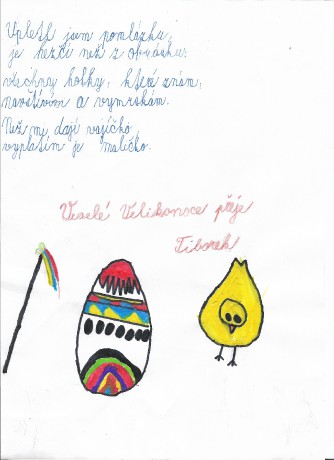 Upletl jsem pomlázku,
je hezčí než z obrázku.
všechny holky, které znám,
navštívím a vymrskám.
Než mi dají vajíčko,
vyplatím je maličko.
Veselé Velikonoce přeje
Tiborek